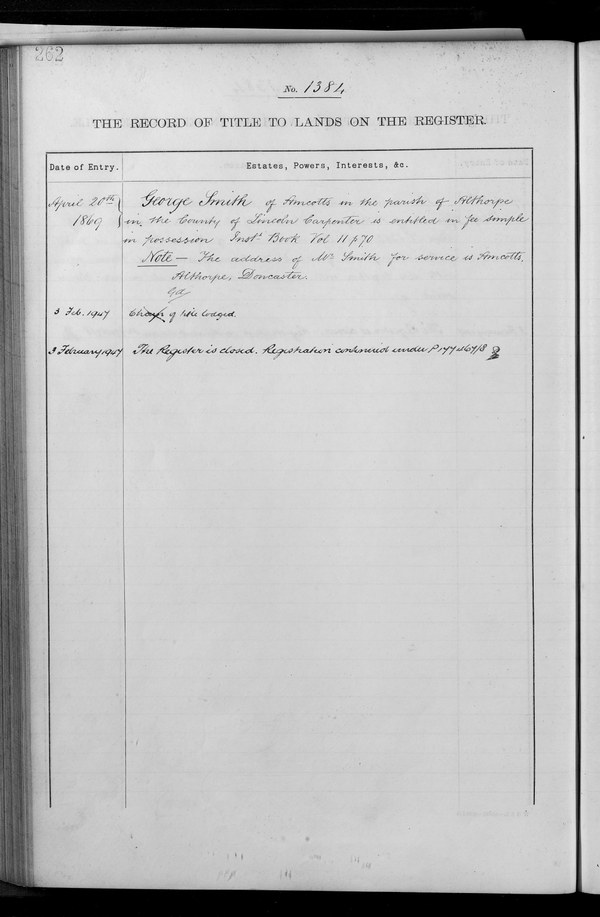 262
No. 1384
THE RECORD OF TITLE TO LANDS ON THE REGISTER.
Date of Entry.
Estates, Powers, Interests, &c.
April 20th 1869
George Smith of Amcotts in the parish of Althorpe
in the County of Lincoln Carpenter is entitled in fee simple
in possession Inst. Book Vol 11 p 70
Note — The address of Mr Smith for service is Amcotts,
Althorpe, Doncaster.
3 Feb. 1947
of title lodged.
3 February 1947
The Register is closed. Registration continued under P